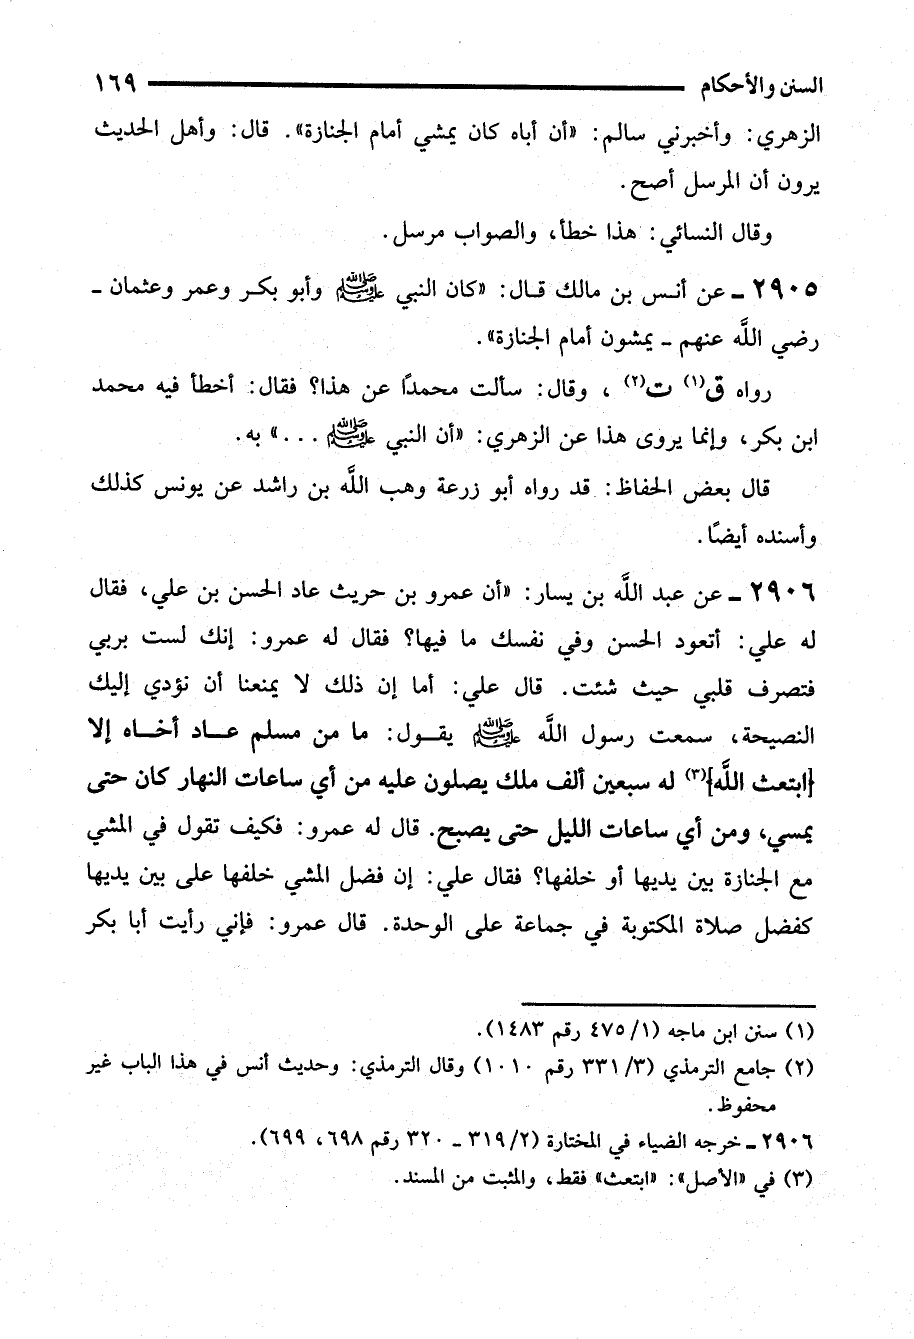 السنن والأحكام ١٦٩
الزهري: وأخبرني سالم: «أن أباه كان يمشي أمام الجنازة». قال: وأهل الحديث
يرون أن المرسل أصح.
وقال النسائي: هذا خطأ، والصواب مرسل.
٢٩٠٥ ـ عن أنس بن مالك قال: «كان النبي ﷺ وأبو بكر وعمر وعثمان ـ
رضي اللَّه عنهم ـ يمشون أمام الجنازة».
رواه ق(١) ت(٢) ، وقال: سألت محمدًا عن هذا؟ فقال: أخطأ فيه محمد
ابن بكر، وإنما يروى هذا عن الزهري: «أن النبي ﷺ ...» به.
قال بعض الحفاظ: قد رواه أبو زرعة وهب اللَّه بن راشد عن يونس كذلك
وأسنده أيضًا.
٢٩٠٦ ـ عن عبد اللَّه بن يسار: «أن عمرو بن حريث عاد الحسن بن علي، فقال
له علي: أتعود الحسن وفي نفسك ما فيها؟ فقال له عمرو: إنك لست بربي
فتصرف قلبي حيث شئت. قال علي: أما إن ذلك لا يمنعنا أن نؤدي إليك
النصيحة، سمعت رسول اللَّه ﷺ يقول: ما من مسلم عاد أخاه إلا
{ابتعث اللَّه}(٣) له سبعين ألف ملك يصلون عليه من أي ساعات النهار كان حتى
يمسي، ومن أي ساعات الليل حتى يصبح. قال له عمرو: فكيف تقول في المشي
مع الجنازة بين يديها أو خلفها؟ فقال علي: إن فضل المشي خلفها على بين يديها
كفضل صلاة المكتوبة في جماعة على الوحدة. قال عمرو: فإني رأيت أبا بكر
(١) سنن ابن ماجه (١/ ٤٧٥ رقم ١٤٨٣).
(٢) جامع الترمذي (٣/ ٣٣١ رقم ١٠١٠) وقال الترمذي: وحديث أنس في هذا الباب غير
محفوظ.
٢٩٠٦ ـ خرجه الضياء في المختارة (٢/ ٣١٩ ـ ٣٢٠ رقم ٦٩٨، ٦٩٩).
(٣) في «الأصل»: «ابتعث» فقط، والمثبت من المسند.